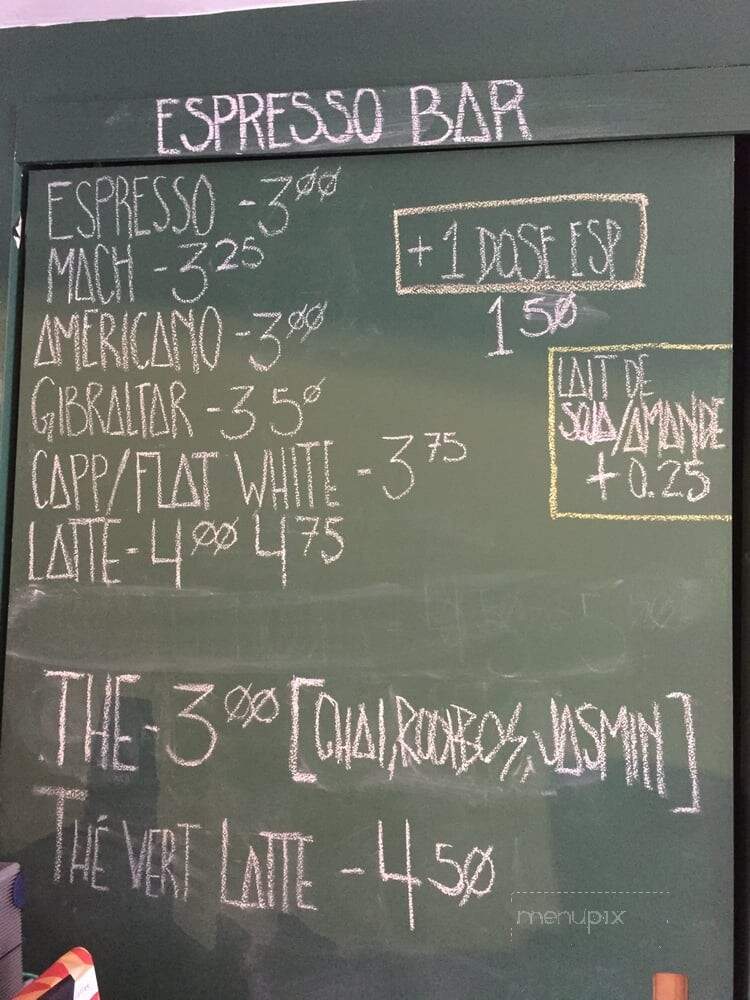 ESPRESSO BAR
ESPRESSO - 3 00
MACH - 3 25
AMERICANO - 3 00
GIBRALTAR - 3 50
CAPP/FLAT WHITE - 3 75
LATTE - 4 00 4 75
+ 1 DOSE ESP
1 50
LAIT DE
SOJA/AMANDE
+ 0.25
THE - 3 00 [CHAI, ROOIBOS, JASMIN]
THÉ VERT LATTE - 4 50
menupix